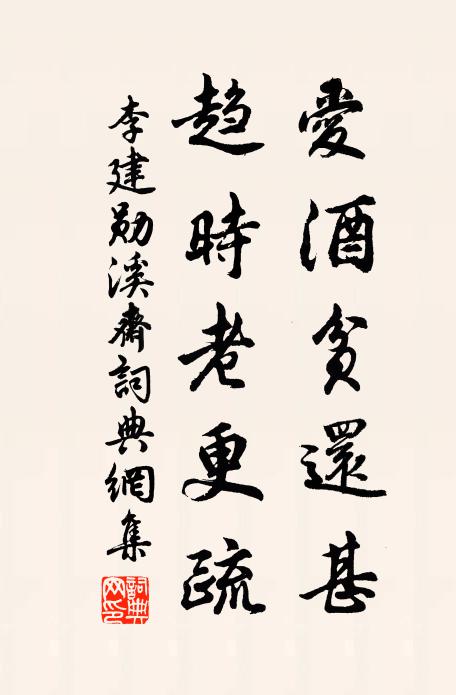 愛酒貧還甚
趋時老更疏
李建勛溪齋詞典網集
詞典网印